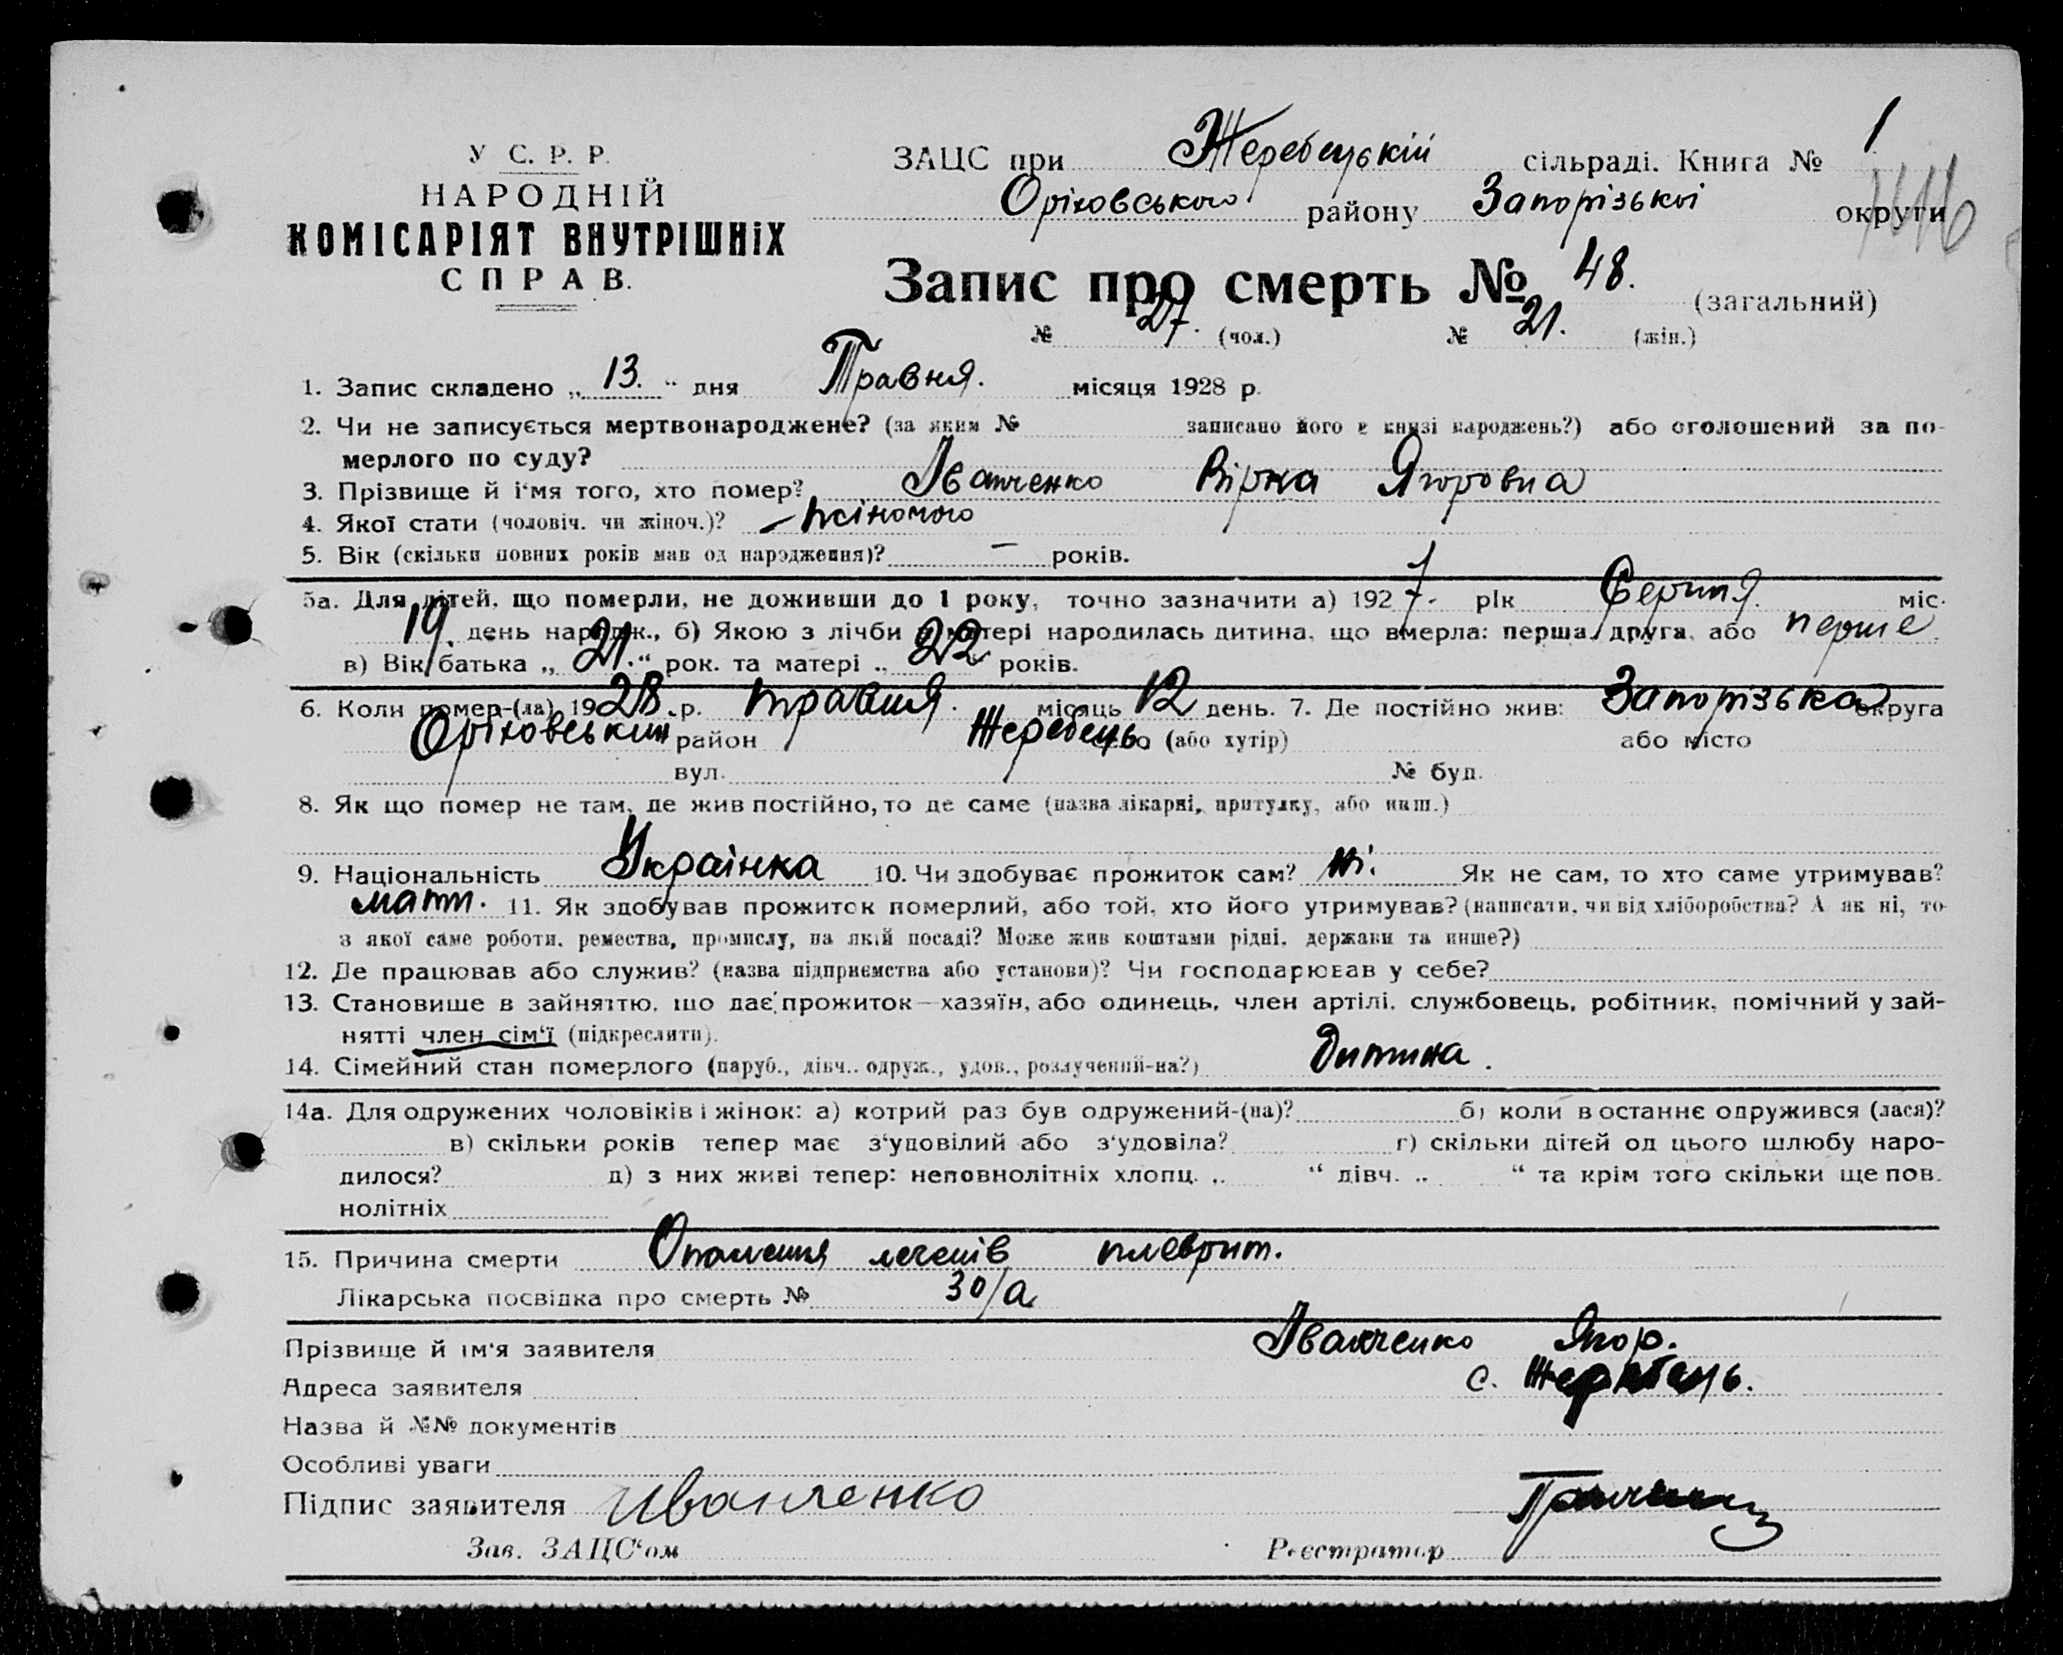 У С. Р. Р.
НАРОДНІЙ
КОМІСАРІЯТ ВНУТРІШНІХ
СПРАВ.
ЗАЦС при Жеребецькій сільраді. Книга № 1
Оріховського району Запорізької округи
Запис про смерть № 48. (загальний)
№ 27. (чол.) № 21. (жін.)
1. Запис складено „ 13. “ дня Травня. місяця 1928 р.
2. Чи не записується мертвонароджене? (за яким № записано його в книзі народжень?) або оголошений за по-
мерлого по суду?
3. Прізвище й ім'я того, хто помер? Іванченко Вірка Ягоровна
4. Якої статі (чоловіч. чи жіноч.)? – жіночого
5. Вік (скільки повних років мав од народження)? – років.
5а. Для дітей, що померли, не доживши до 1 року, точно зазначити а) 1927. рік Серпня. міс.
19. день народж., б) Якою з лічби у матері народилась дитина, що вмерла: перша, друга, або перше
в) Вік батька „ 21. “ рок. та матері „ 22 років.
6. Коли помер-(ла) 1928. р. травня. місяць 12 день. 7. Де постійно жив: Запорізька округа
Оріховський район Жеребець село (або хутір) або місто
вул. № буд.
8. Як що помер не там, де жив постійно, то де саме (назва лікарні, притулку, або инш.)
9. Національність Українка 10. Чи здобуває прожиток сам? ні. Як не сам, то хто саме утримував?
мати. 11. Як здобував прожиток померлий, або той, хто його утримував? (написати, чи від хліборобства? А як ні, то
з якої саме роботи, ремества, промислу, на якій посаді? Може жив коштами рідні, держави та инше?)
12. Де працював або служив? (назва підприємства або установи)? Чи господарював у себе?
13. Становище в зайняттю, що дає прожиток—хазяїн, або одинець, член артілі, службовець, робітник, помічний у зай-
нятті член сім'ї (підкреслити).
14. Сімейний стан померлого (паруб., дівч.. одруж., удов., розлучений-на?) Дитина.
14а. Для одружених чоловіків і жінок: а) котрий раз був одружений-(на)? б) коли в останнє одружився (лася)?
в) скільки років тепер має з'удовілий або з'удовіла? г) скільки дітей од цього шлюбу наро-
дилося? д) з них живі тепер: неповнолітніх хлопц. „ “ дівч. „ “ та крім того скільки ще пов.
нолітніх
15. Причина смерти Опалення легенів плеврит.
Лікарська посвідка про смерть № 30/а
Прізвище й ім'я заявителя Іванченко Ягор.
Адреса заявителя с. Жеребець.
Назва й №№ документів
Особливі уваги
Підпис заявителя Иванченко
Зав. ЗАЦС'ом Реєстратор